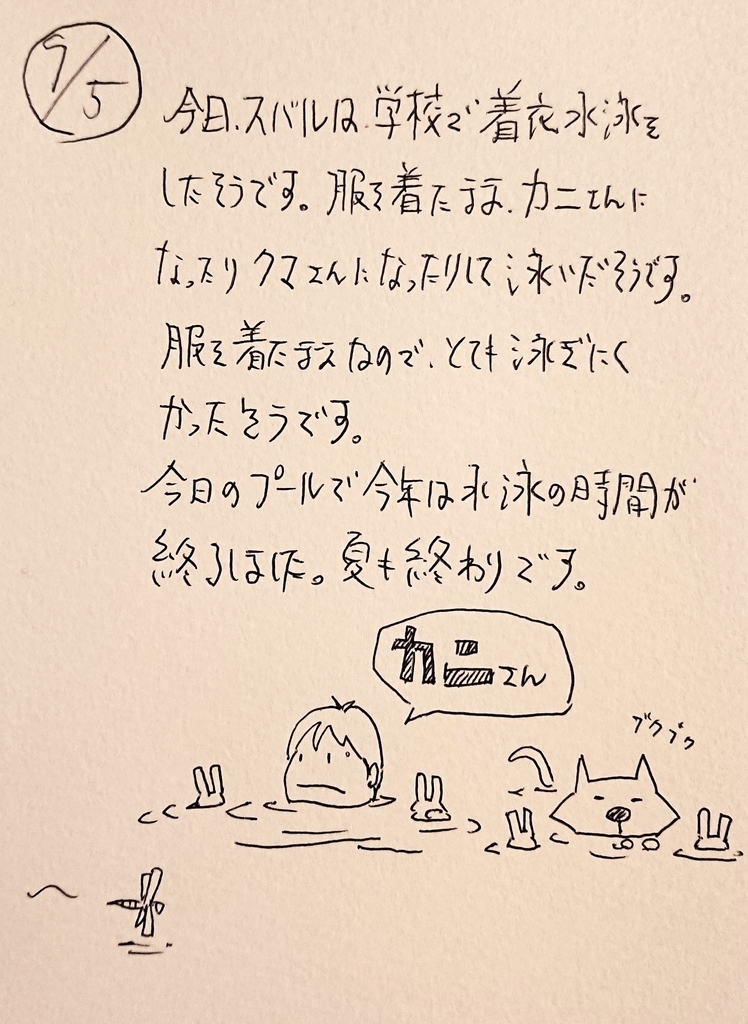 9/5
今日、スバルは、学校で着衣水泳を
したそうです。服を着たまま、カニさんに
なったりクマさんになったりして泳いだそうです。
服を着たままなので、とても泳ぎにく
かったそうです。
今日のプールで今年は水泳の時間が
終了しました。夏も終わりです。
カニさん
ブクブク